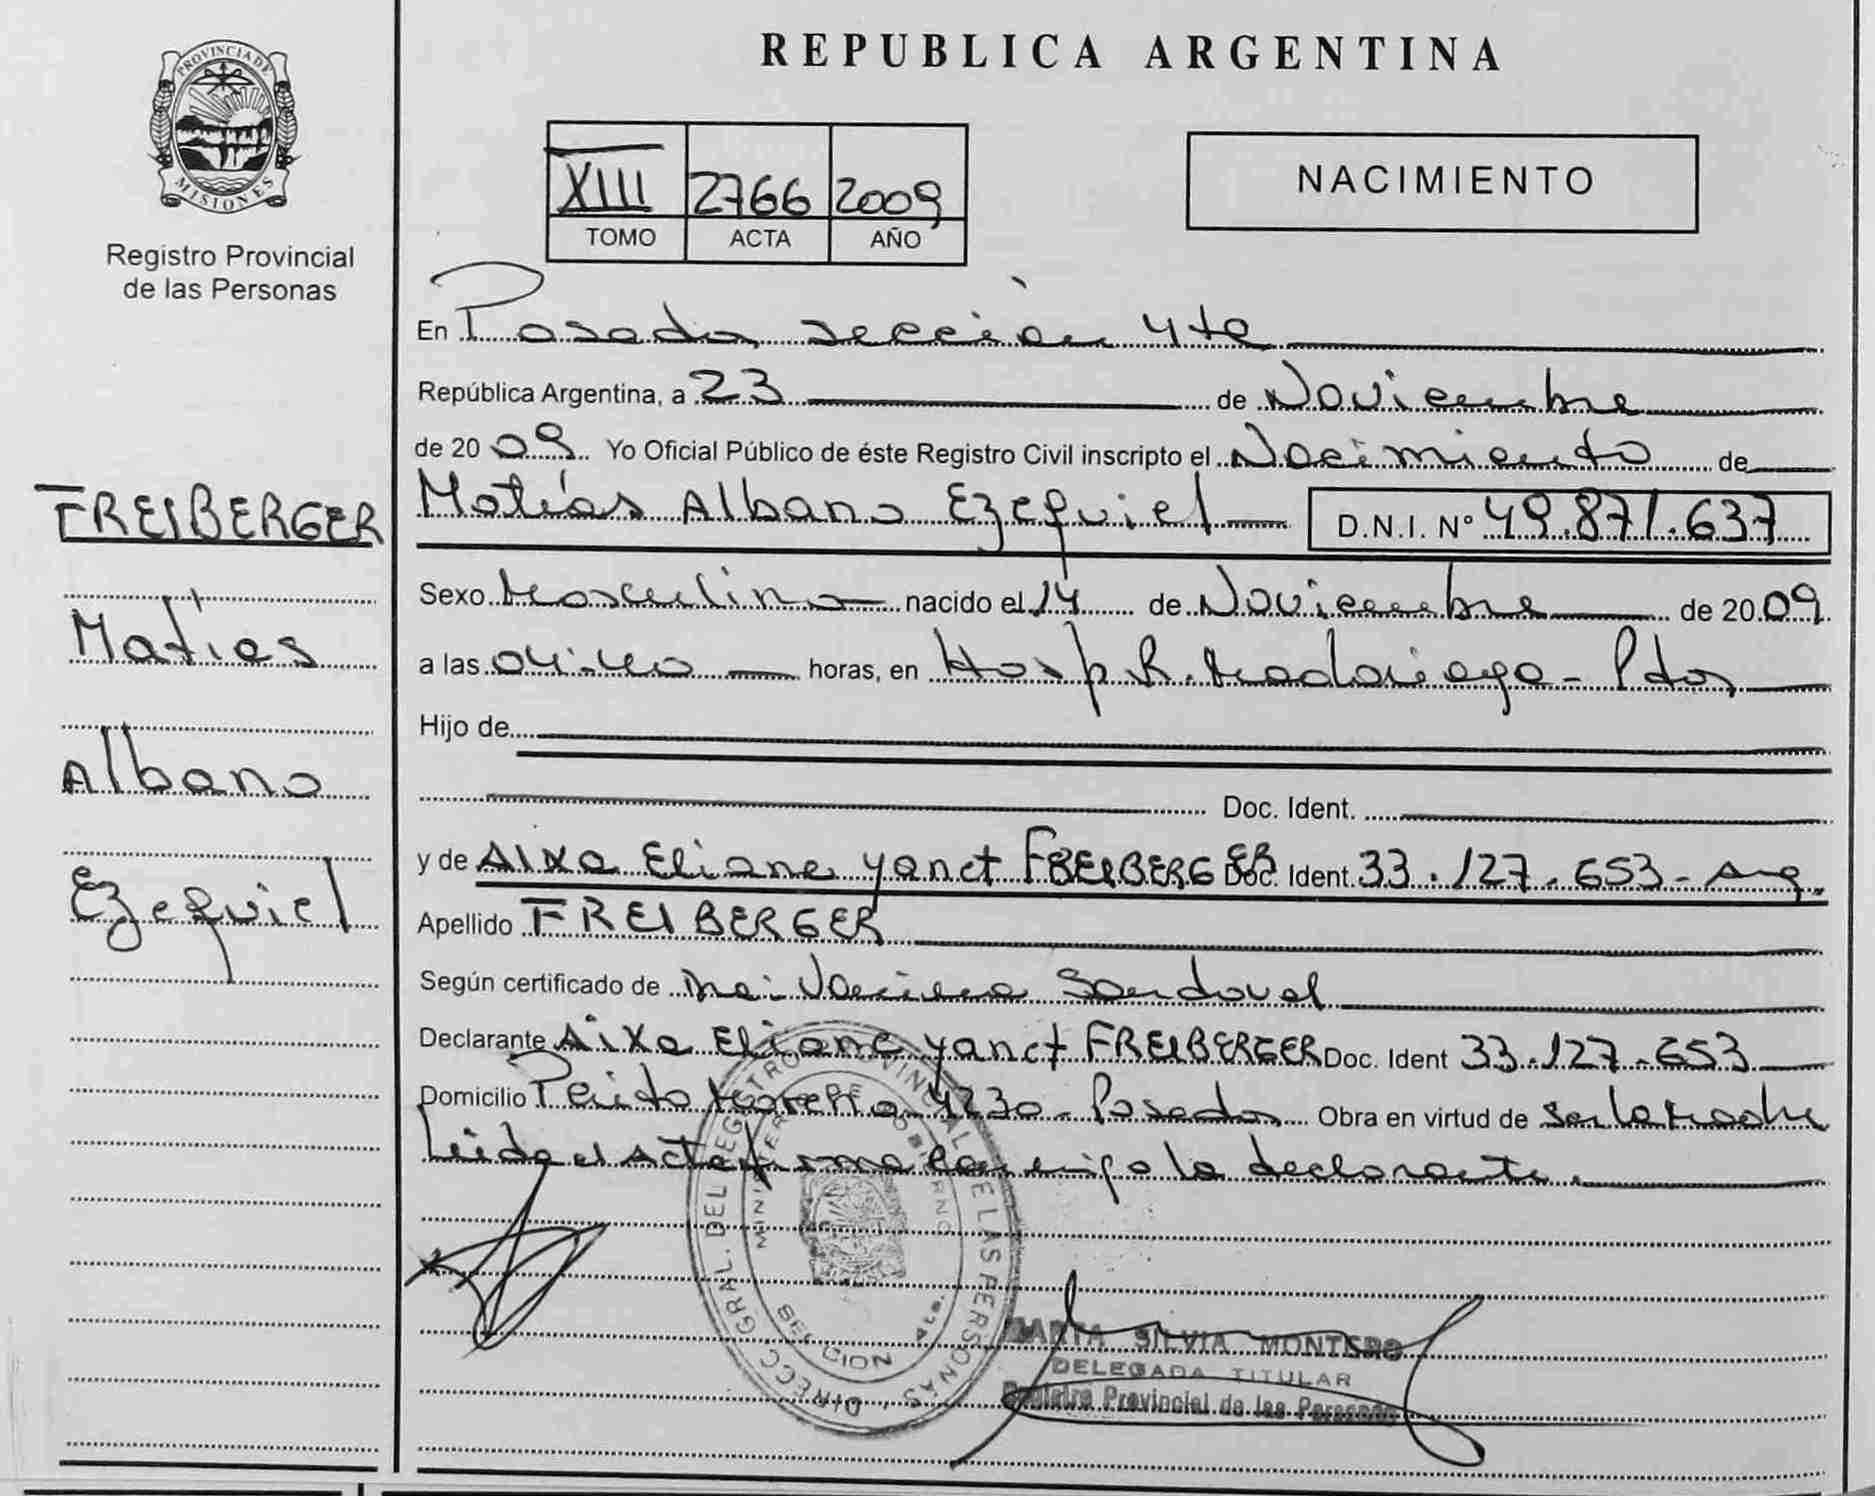 PROVINCIA DE
MISIONES
Registro Provincial
de las Personas
FREIBERGER
Matías
Albano
Ezequiel
REPUBLICA ARGENTINA
XIII 2766 2009
TOMO ACTA AÑO
NACIMIENTO
En Posadas sección 4ta
República Argentina, a 23 de Noviembre
de 20 09 Yo Oficial Público de éste Registro Civil inscripto el Nacimiento de
Matías Albano Ezequiel D.N.I. Nº 49.871.637
Sexo Masculino nacido el 14 de Noviembre de 20 09
a las 04:40 horas, en Hosp. R. Madariaga - Pdas
Hijo de
Doc. Ident.
y de Aixa Eliane Yanet FREIBERGER Doc. Ident. 33.127.653 - Arg.
Apellido FREIBERGER
Según certificado de Sandoval
Declarante Aixa Eliane Yanet FREIBERGER Doc. Ident 33.127.653
Domicilio Perito Moreno 4230 - Posadas Obra en virtud de ser la Madre
Leida el Acta firma conmigo la declarante.
DIRECC. GRAL. DEL REGISTRO PROVINCIAL DE LAS PERSONAS
MINISTERIO DE GOBIERNO
SECCION 4ta.
MARTA SILVIA MONTERO
DELEGADA TITULAR
Registro Provincial de las Personas